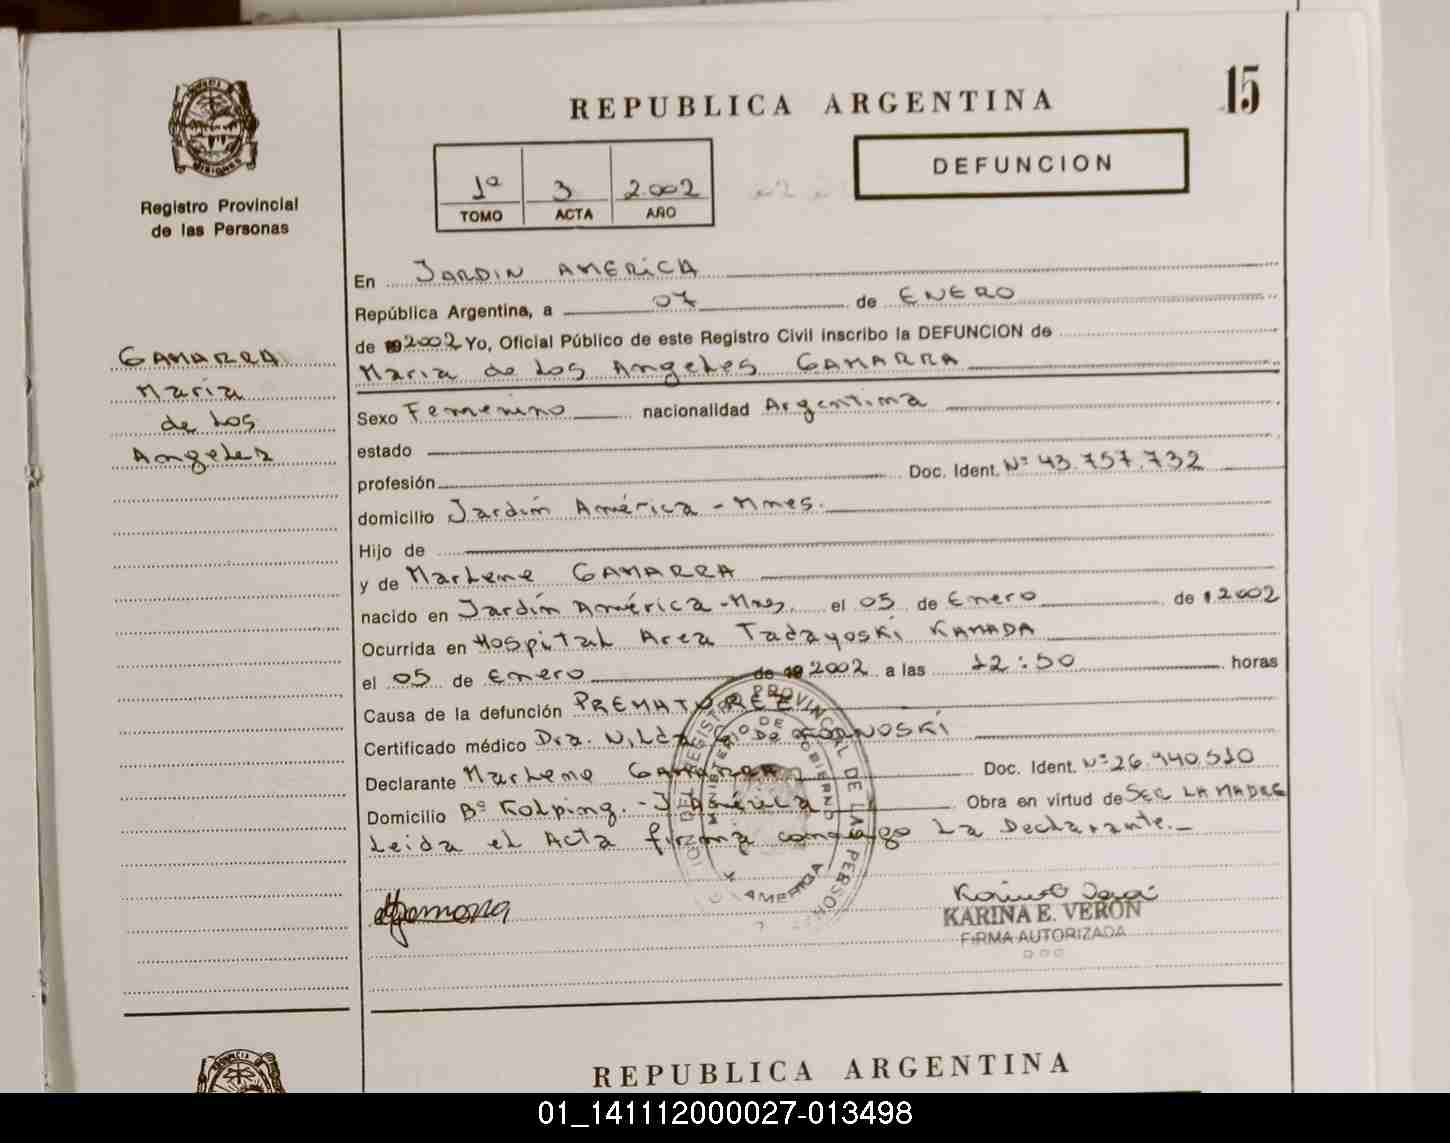 15
REPUBLICA ARGENTINA
DEFUNCION
1ª 3 2.002
TOMO ACTA AÑO
Registro Provincial
de las Personas
GAMARRA
Maria
de Los
Angeles
En JARDIN AMERICA
República Argentina, a 07 de ENERO
de 2002 Yo, Oficial Público de este Registro Civil inscribo la DEFUNCION de
Maria de Los Angeles GAMARRA
Sexo Femenino nacionalidad Argentina
estado
profesión Doc. Ident. Nº 43.757.732
domicilio Jardín América - Mnes.
Hijo de
y de Marlene GAMARRA
nacido en Jardín América - Mnes el 05 de Enero de 2002
Ocurrida en Hospital Area Tadayoski KAMADA
el 05 de Enero de 19 2002 a las 12:50 horas
Causa de la defunción PREMATUREZ
Certificado médico Dra. Nilda De
Declarante Marlene GAMARRA Doc. Ident. Nº 26.940.510
Domicilio Bº Kolping. - J. América Obra en virtud de SER LA MADRE
Leida el Acta firma conmigo La Declarante.
REGISTRO PROVINCIAL DE LAS PERSON
MINISTERIO DE GOBIERNO
AMERICA
KARINA E. VERON
FIRMA AUTORIZADA
REPUBLICA ARGENTINA
01_141112000027-013498